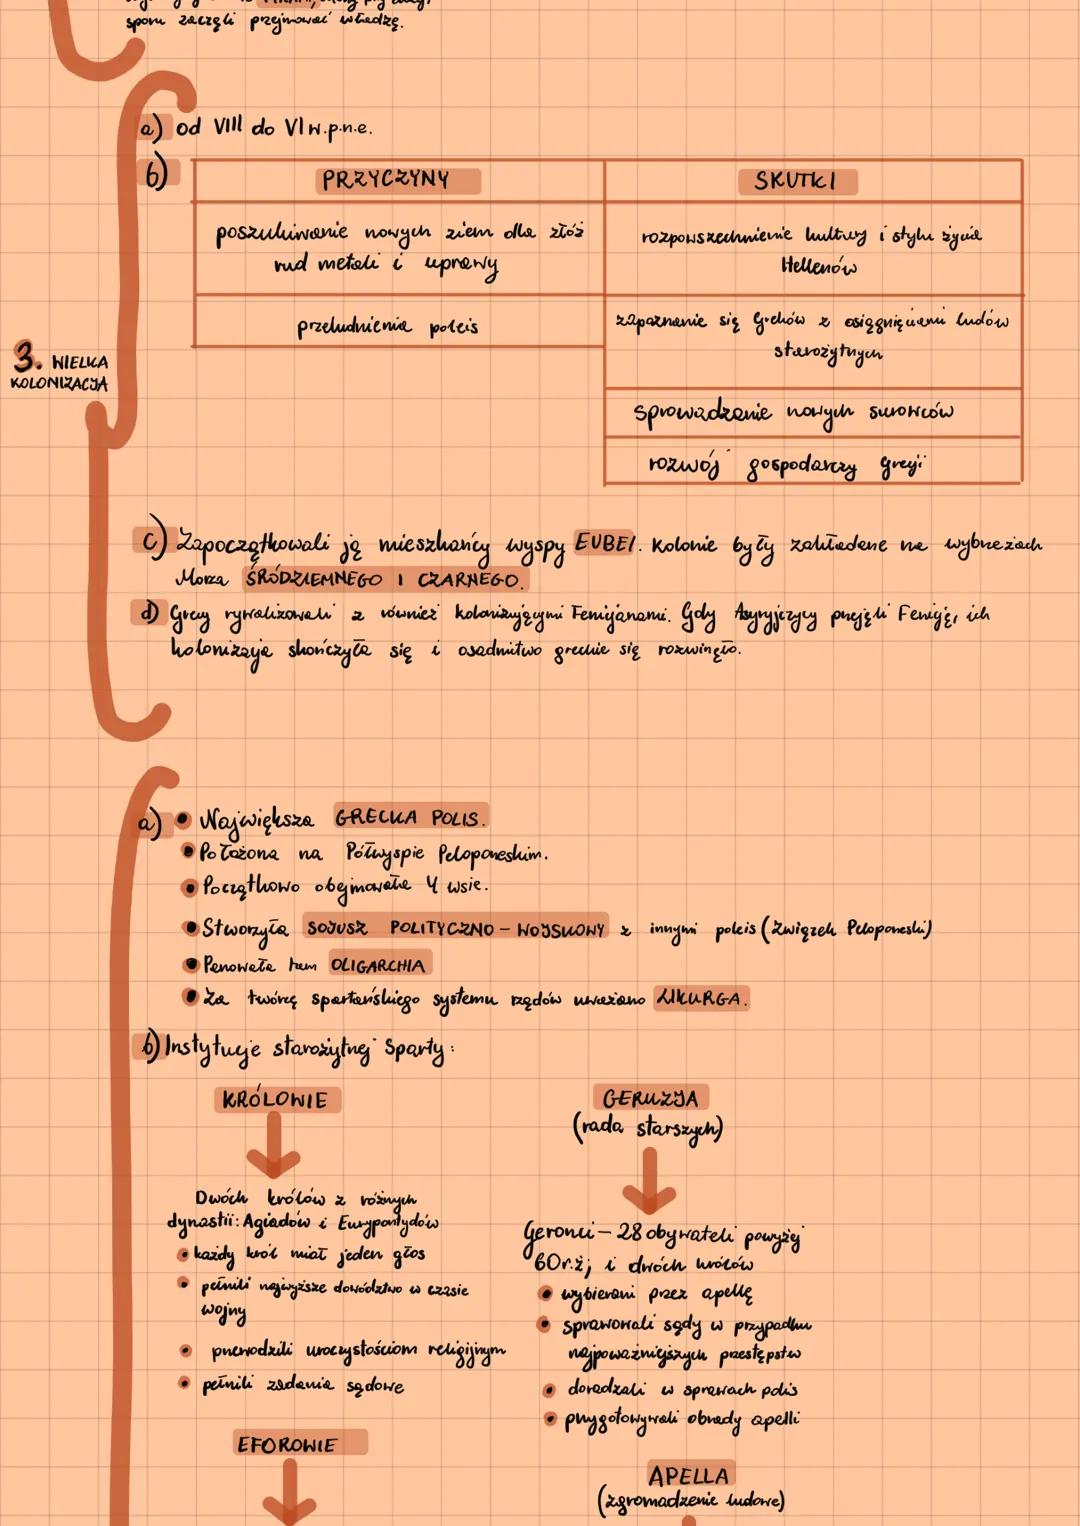 spom zaczęli przejmować władzę.
a) od VIII do VI w.p.n.e.
b)
PRZYCZYNY
SKUTKI
poszukiwanie nowych ziem dla złóż
rud metali i uprawy
rozpowszechnienie kultury i stylu życia
Hellenów
przeludnienia poleis
zapoznanie się Greków z osiągnięciami ludów
starożytnych
3. WIELKA
KOLONIZACJA
sprowadzanie nowych surowców
rozwój gospodarczy Grecji
c) Zapoczątkowali ją mieszkańcy wyspy EUBEI. Kolonie były zakładane na wybrzeżach
Morza ŚRÓDZIEMNEGO I CZARNEGO.
d) Grecy rywalizowali z również kolonizującymi Fenicjanami. Gdy Asyryjczycy przejęli Fenicję, ich
kolonizacja skończyła się i osadnictwo greckie się rozwinęło.
a) • Największa GRECKA POLIS.
• Położona na Półwyspie Peloponeskim.
• Początkowo obejmowała 4 wsie.
• Stworzyła SOJUSZ POLITYCZNO - WOJSKOWY z innymi poleis (Związek Peloponeski)
• Panowała tam OLIGARCHIA
• Za twórcę spartańskiego systemu rządów uważano LIKURGA.
b) Instytucje starożytnej Sparty:
KRÓLOWIE
GERUZJA
(rada starszych)
Dwóch królów z różnych
dynastii: Agiadów i Eurypontydów
• każdy król miał jeden głos
• pełnili najwyższe dowództwo w czasie
wojny
• przewodzili uroczystościom religijnym
• pełnili zadania sądowe
Geronci - 28 obywateli powyżej
60 r.ż; i dwóch królów
• wybierani przez apellę
• sprawowali sądy w przypadku
najpoważniejszych przestępstw
• doradzali w sprawach polis
• przygotowywali obrady apelli
EFOROWIE
APELLA
(zgromadzenie ludowe)